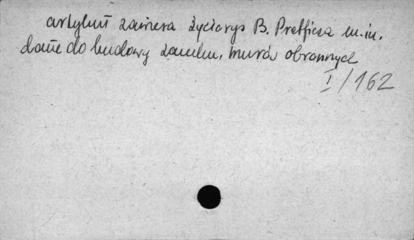 artykuł zawiera życiorys B. Pretficza m.in.
dane do budowy zamku, murów obronnych
I/162